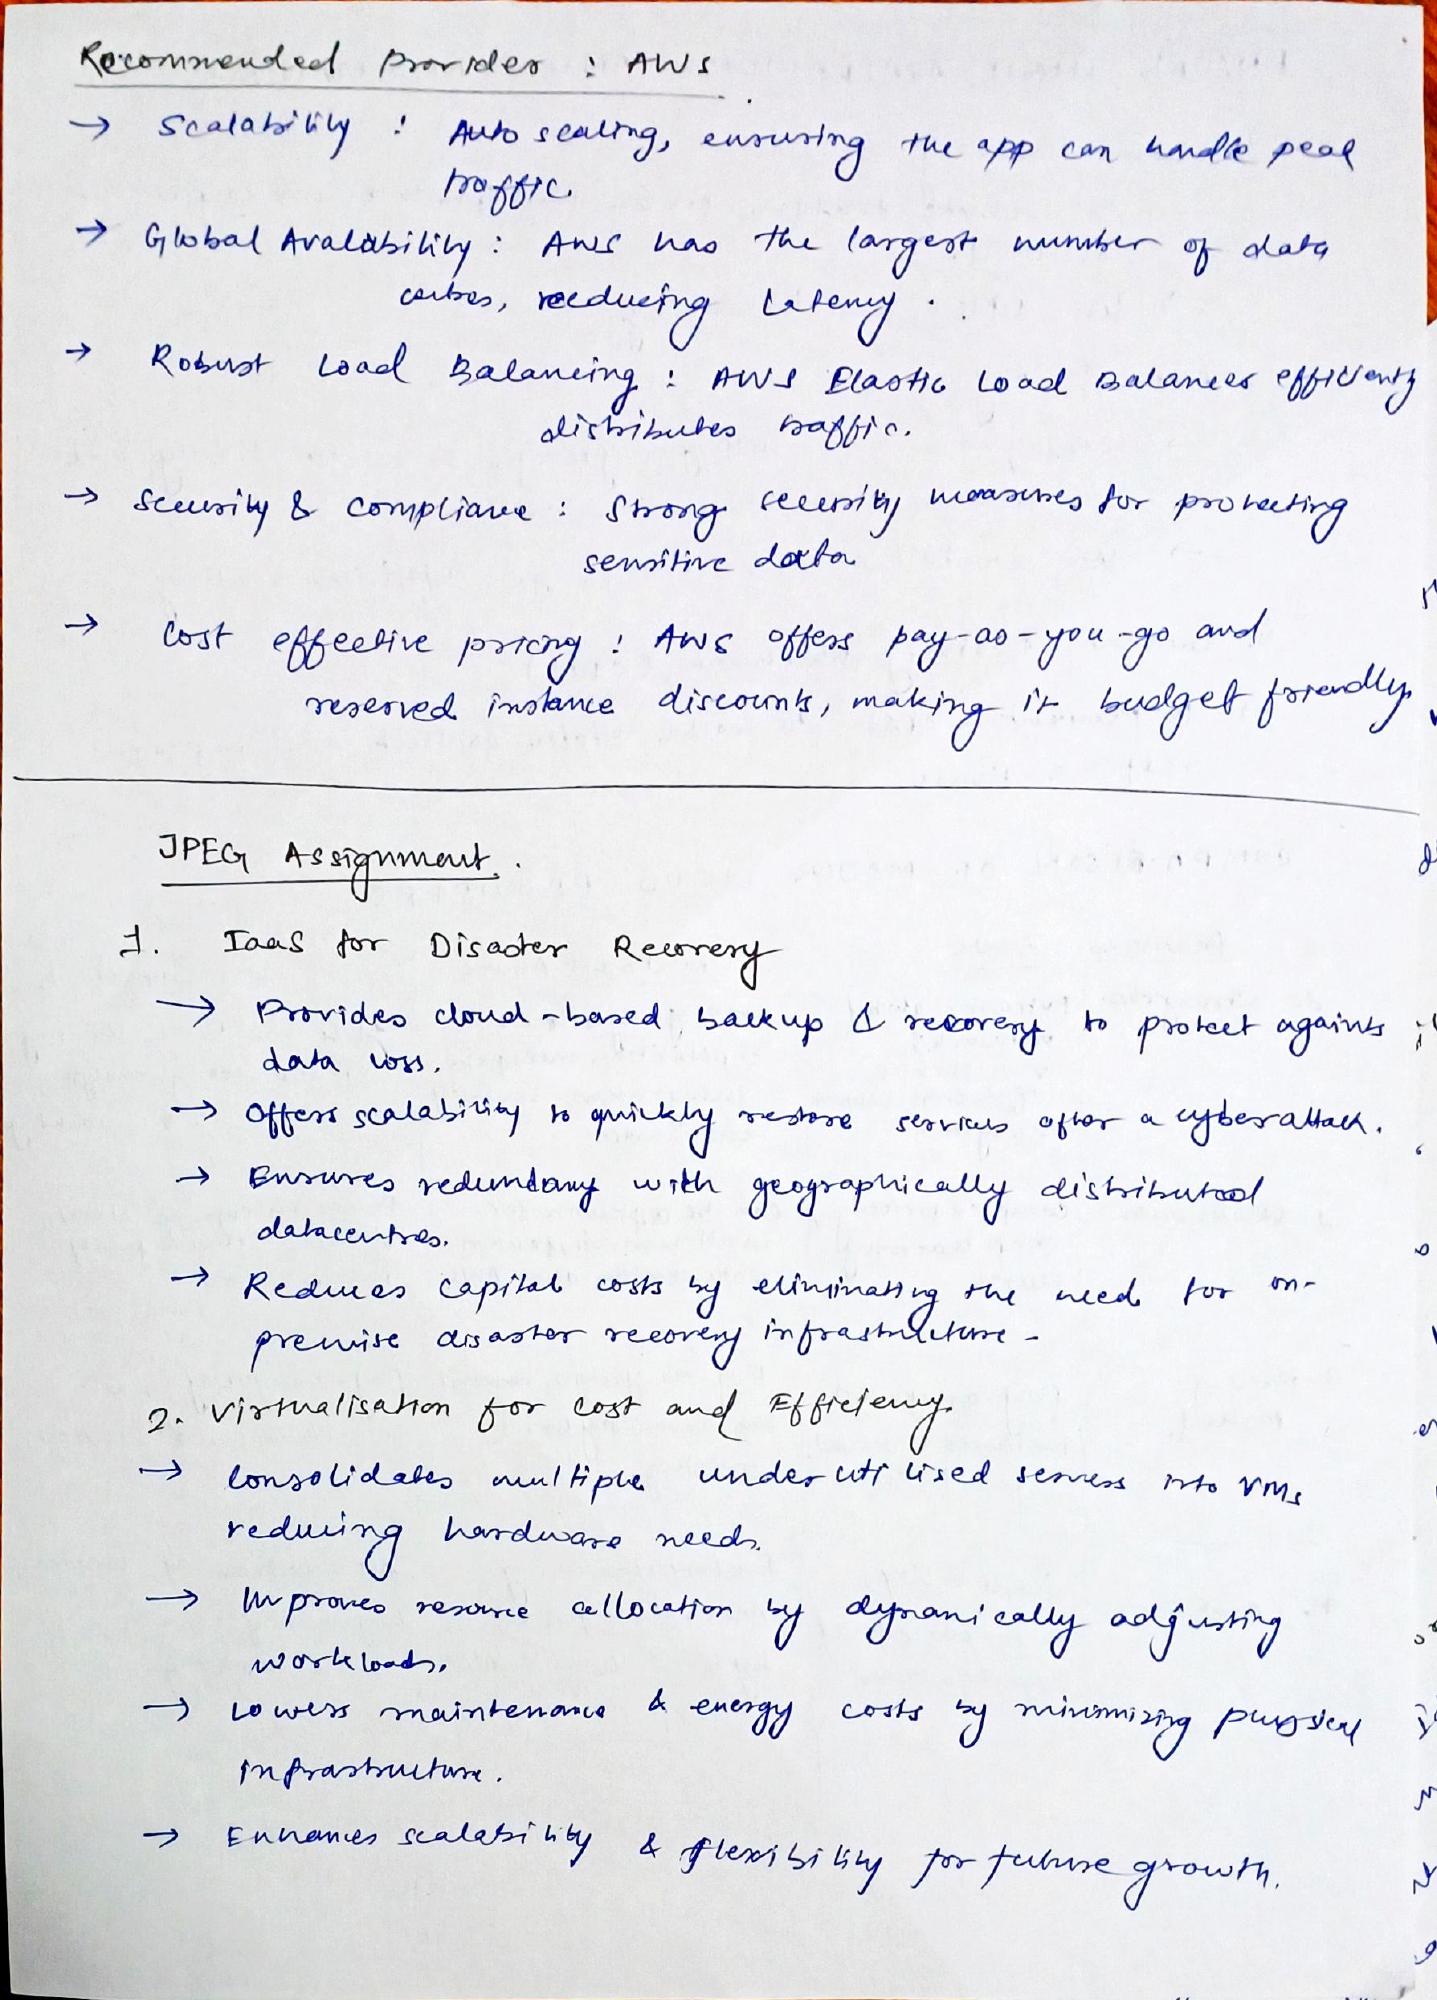 Recommended Provider : AWS
→ Scalability : Auto scaling, ensuring the app can handle peak
traffic.
→ Global Avalability : AWS has the largest number of data
centres, reeducing Latency .
→ Robust Load Balancing : AWS Elastic Load Balancer efficiently
distributes traffic.
→ Security & Compliance : Strong security measures for protecting
sensitive data
→ Cost effective pricing : AWS offers pay-as-you-go and
reserved instance discounts, making it budget friendly.
JPEG Assignment.
1. IaaS for Disaster Recovery
→ Provides cloud-based backup & recovery to protect againts
data loss.
→ Offers scalability to quickly restore services after a cyberattack.
→ Ensures redundancy with geographically distributed
datacentres.
→ Reduces capital costs by eliminating the need for on-
premise disaster recovery infrastructure -
2. Virtualisation for Cost and Efficiency.
→ Consolidates multiple underutilised servers into VMs
reducing hardware needs.
→ Improves resource allocation by dynamically adjusting
workloads.
→ Lowers maintenance & energy costs by minimizing physical
infrastructure.
→ Enhances scalability & flexibility for future growth.